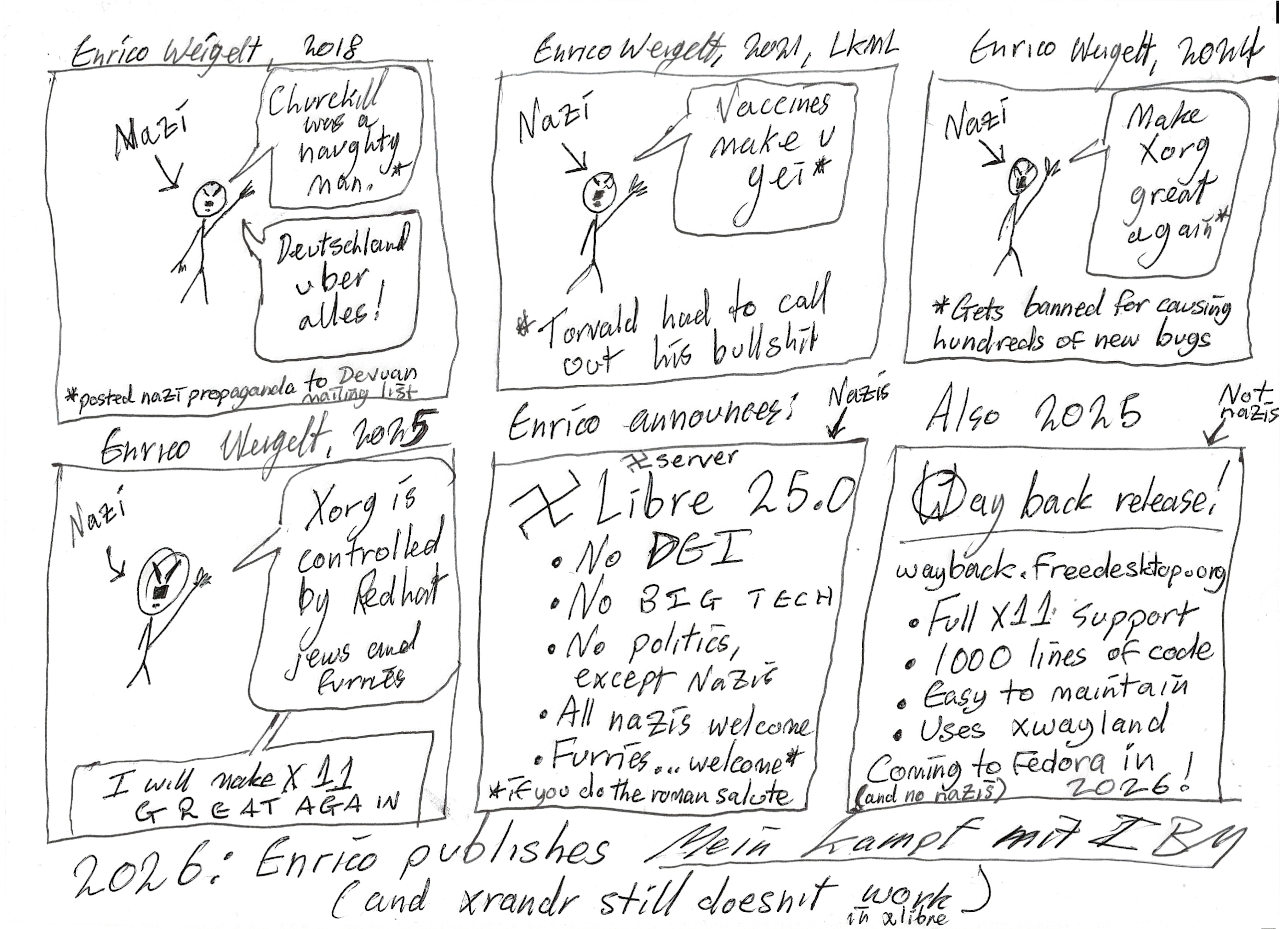 Enrico Weigelt, 2018
Nazi
Churchill
was a
naughty
man.*
Deutschland
uber
alles!
*posted nazi propaganda to Devuan
mailing list
Enrico Weigelt, 2021, LKML
Nazi
Vaccines
make u
gei*
*Torvald had to call
out his bullshit
Enrico Weigelt, 2024
Nazi
Make
Xorg
great
again*
*Gets banned for causing
hundreds of new bugs
Enrico Weigelt, 2025
Nazi
Xorg is
controlled
by Redhat
jews and
furries
I will make X11
GREAT AGAIN
Enrico announces:
Nazis
server
Libre 25.0
• No DGI
• No BIG TECH
• No politics,
except Nazis
• All nazis welcome
• Furries...welcome*
*if you do the roman salute
Also 2025
Not
nazis
Wayback release!
wayback.freedesktop.org
• Full X11 support
• 1000 lines of code
• Easy to maintain
• Uses xwayland
Coming to Fedora in
(and no nazis) 2026!
2026: Enrico publishes Mein Kampf mit IBM
(and xrandr still doesnit work)
in xlibre